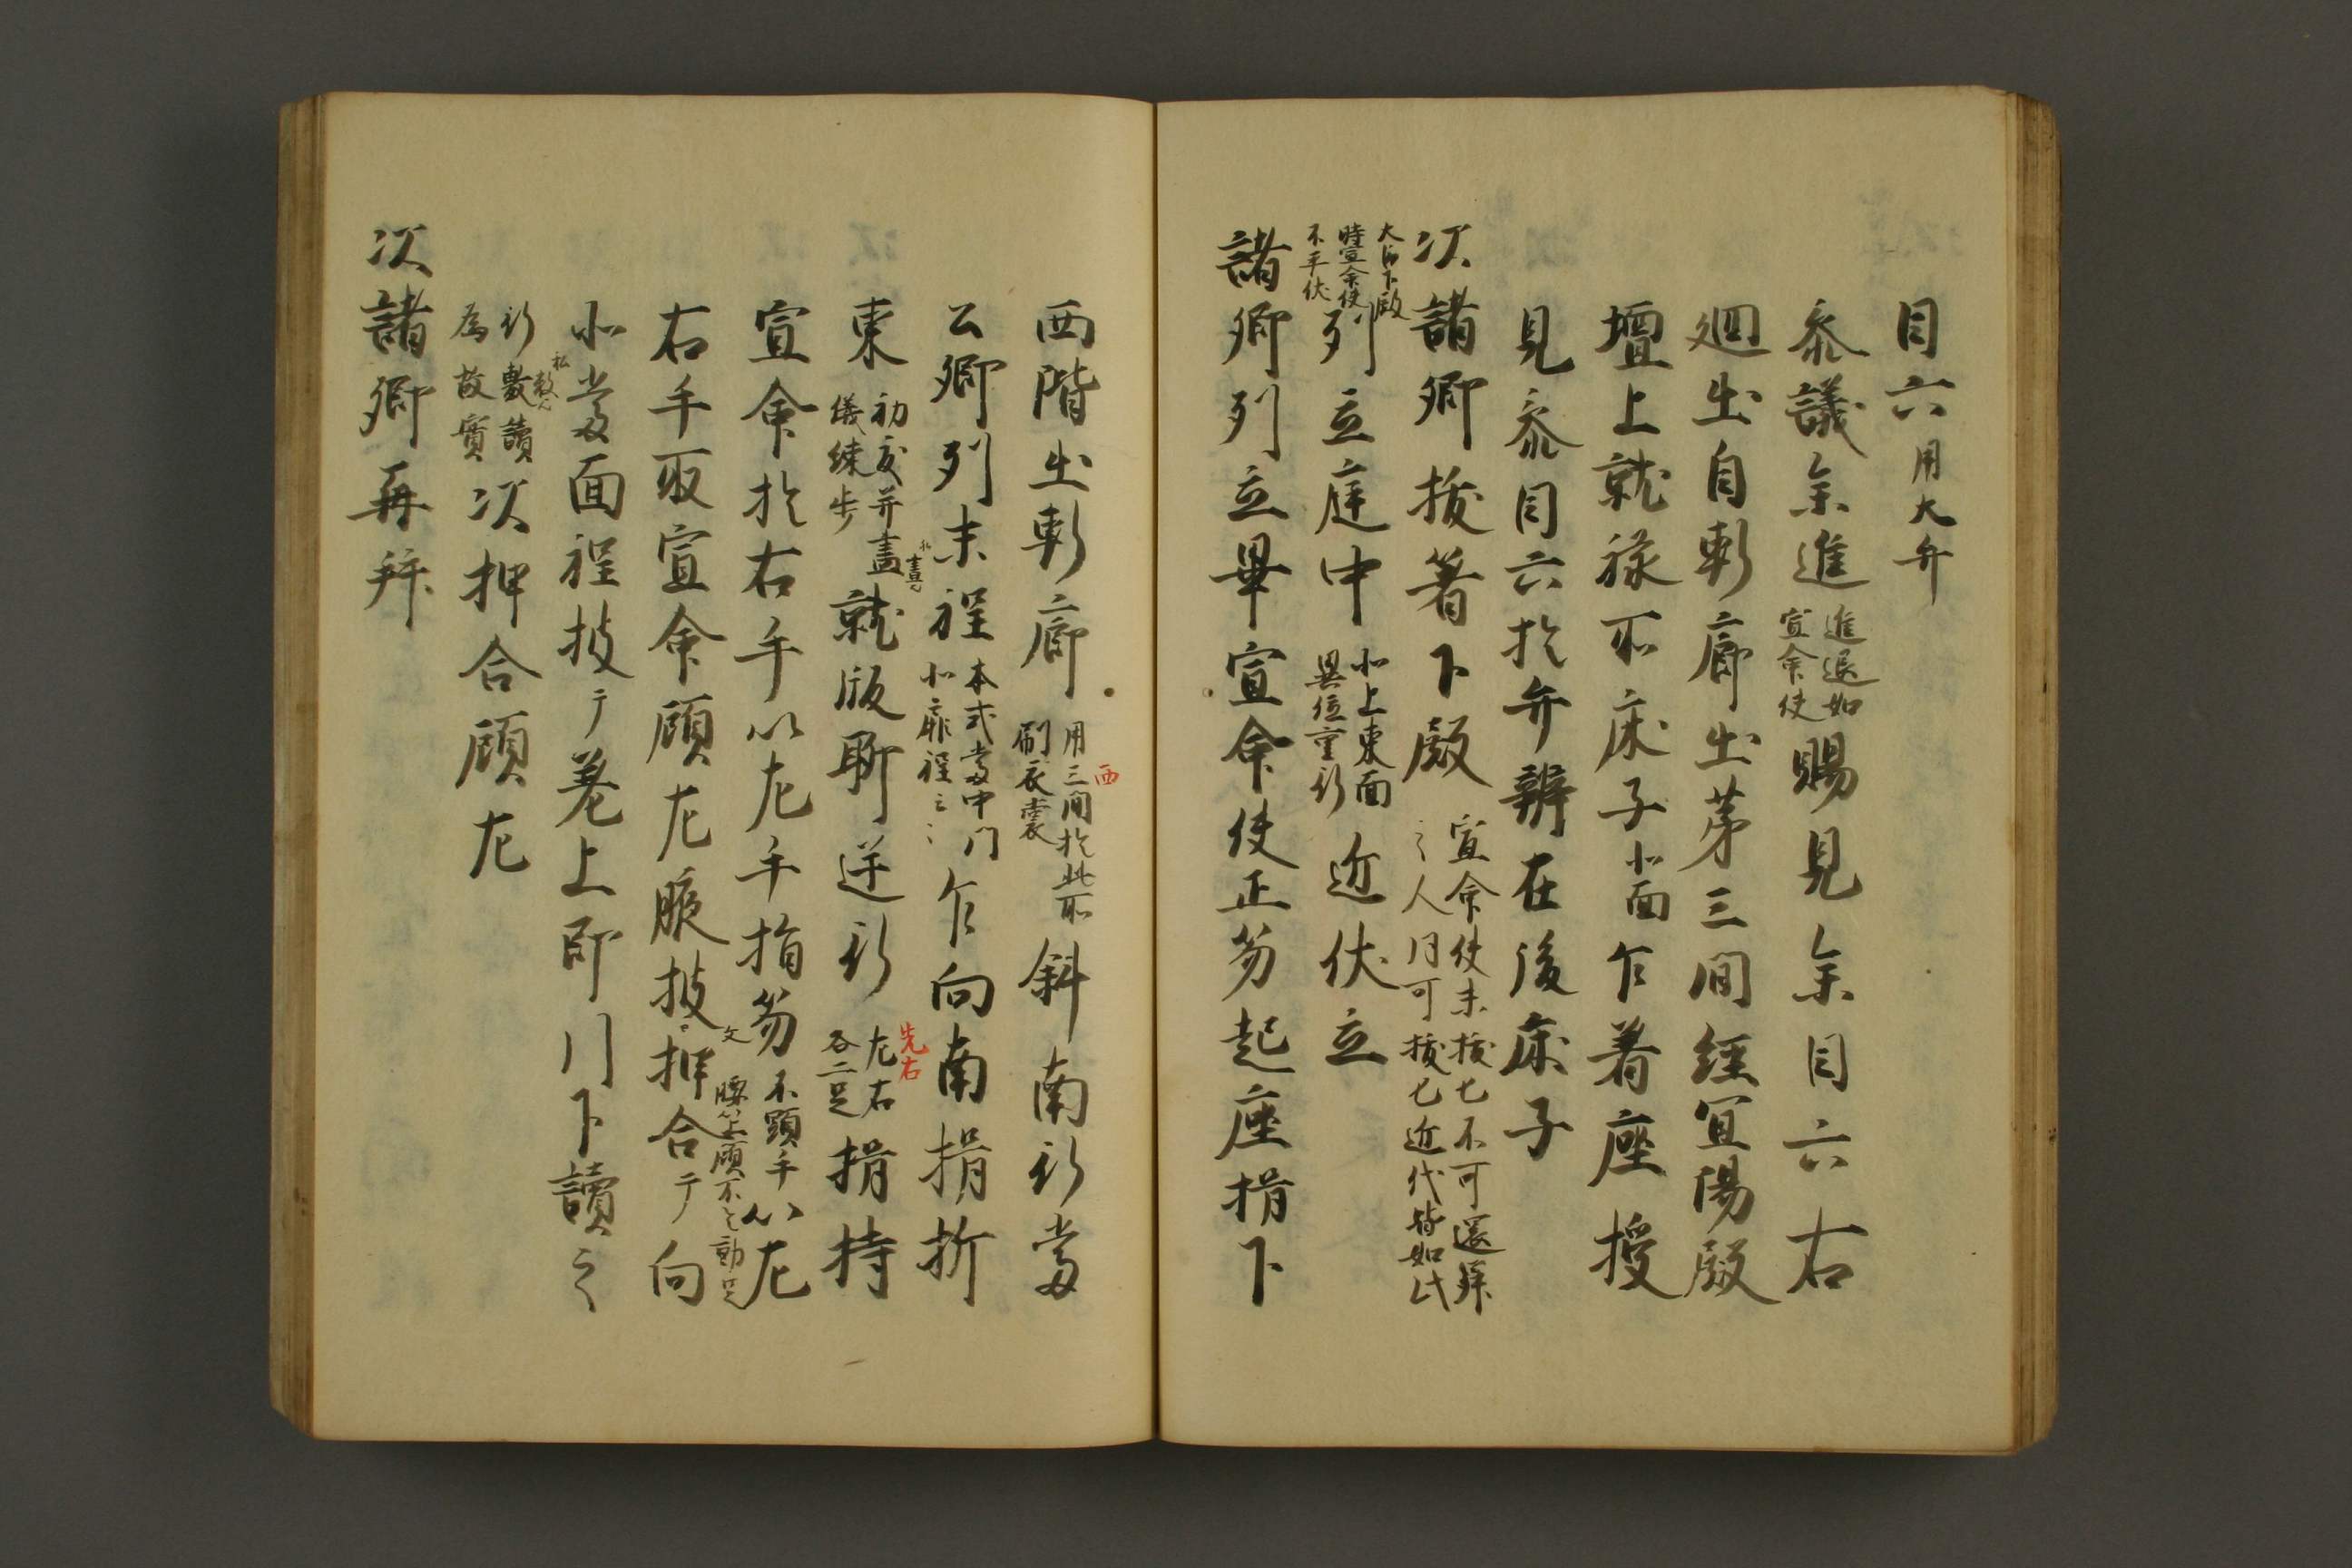 目六用大弁
参議参進進退如
宣命使賜見参目六右
廻出自軒廊出第三間経宜陽殿
壇上就禄所床子北面乍着座授
見参目六於弁辨在後床子
次諸卿抜箸下殿宣命使未抜匕不可還拜
之人同可抜匕近代皆如此
大臣下殿
時宣命使
不平伏
列立庭中北上東面
異位重行近伏立
諸卿列立畢宣命使正笏起座揖下
西階出軒廊用三間於此所
刷衣裳斜南行當
西
公卿列末程本式當中门
北扉程云々乍向南揖折
東初度并畫
儀練歩就版聊逆行左右
各二足揖持
畫
先右
宣命於右手以左手揖笏不顕手以左
右手取宣命顧左腋披押合テ向
文
腰以上顧不々動足
北當面程披テ巻上即引下讀之
行敷讀
為故實次押合顧左
私
次諸卿再拜